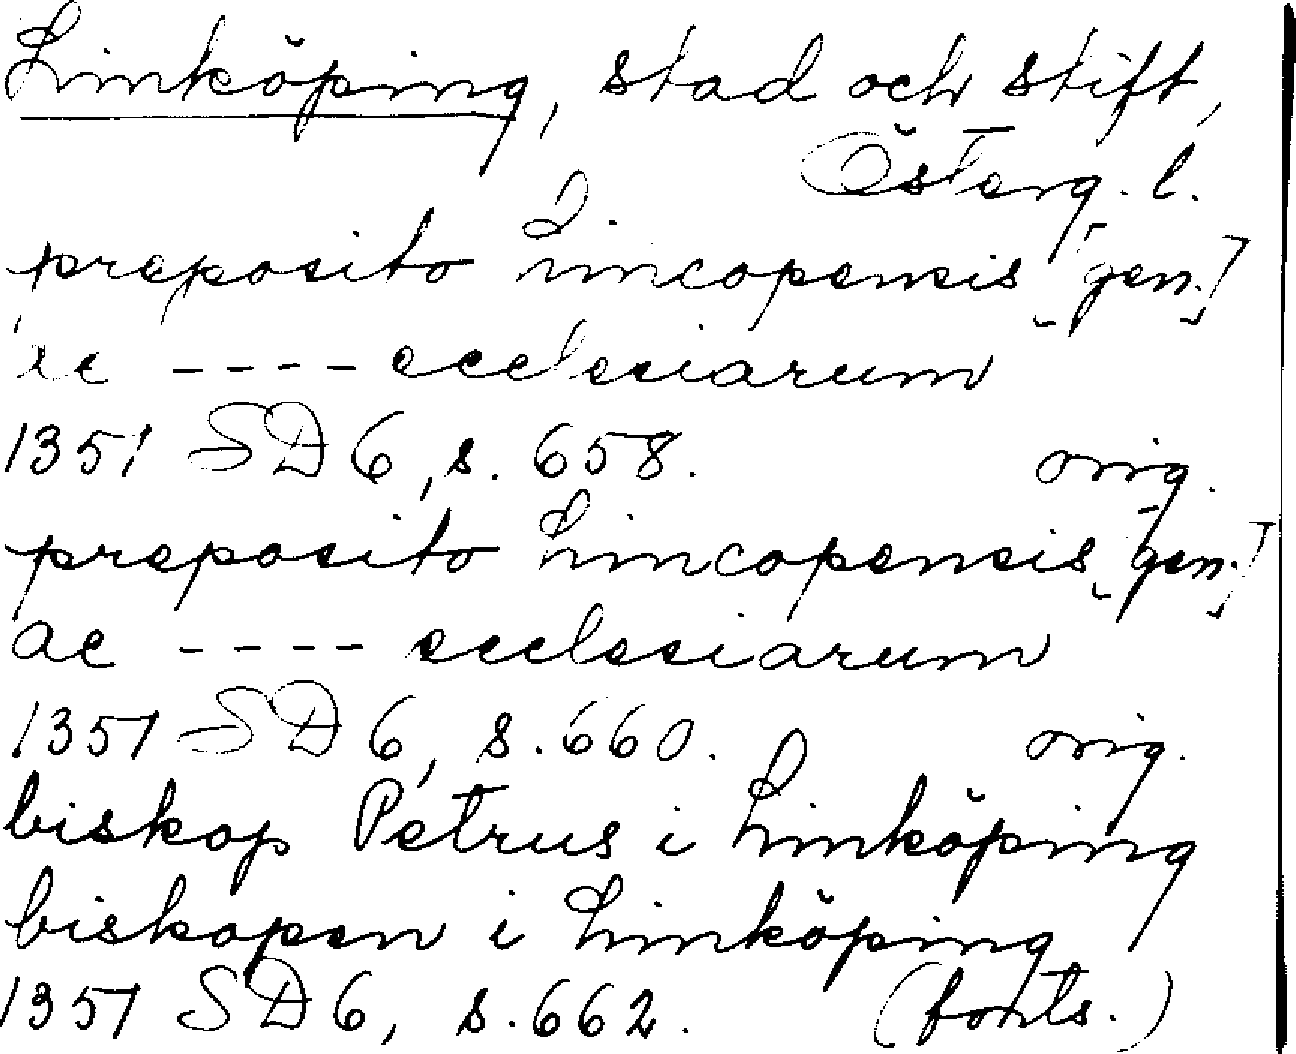 Linköping, stad och stift,
Österg. l.
preposito Lincopensis [gen.]
ac ---- ecclesiarum
1351 SD 6, s. 658. orig.
preposito Lincopensis [gen.]
ac ---- ecclesiarum
1351 SD 6, s. 660. orig.
biskop Petrus i Linköping
biskopen i Linköping
1351 SD 6, s. 662. (forts.)